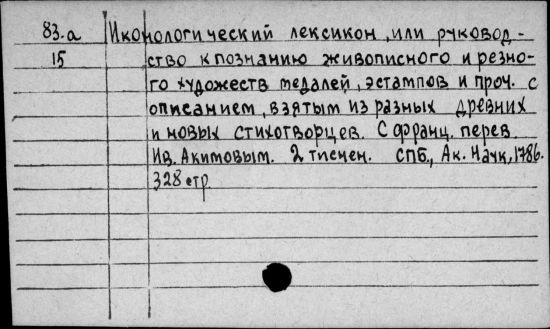 83.а Иконологический лексикон, или руковод-
15 ство к познанию живописного и резно-
го художеств медалей, эстампов и проч. с
описанием, взятым из разных древних
и новых стихотворцев. С франц. перев.
Ив. Акимовым. 2 тиснен. СПб., Ак. Наук, 1786.
328 стр.